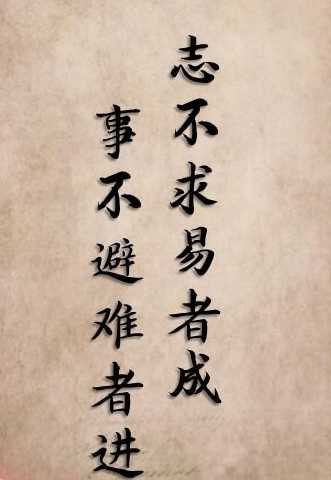 志不求易者成
事不避难者进